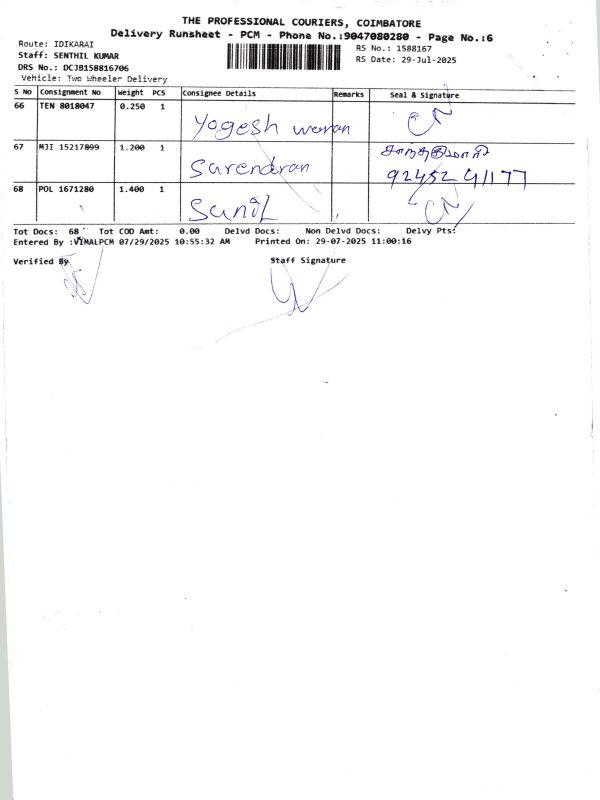 THE PROFESSIONAL COURIERS, COIMBATORE
Delivery Runsheet - PCM - Phone No.:9047080280 - Page No.:6
Route: IDIKARAI
Staff: SENTHIL KUMAR
DRS No.: DCJB158816706
Vehicle: Two Wheeler Delivery
RS No.: 1588167
RS Date: 29-Jul-2025
S No Consignment No Weight PCS Consignee Details Remarks Seal & Signature
66 TEN 8018047 0.250 1 Yogesh waran
67 MJI 15217899 1.200 1 Surendran
9245291177
68 POL 1671280 1.400 1 Sunil
Tot Docs: 68 Tot COD Amt: 0.00 Delvd Docs: Non Delvd Docs: Delvy Pts:
Entered By :VIMALPCM 07/29/2025 10:55:32 AM Printed On: 29-07-2025 11:00:16
Verified By Staff Signature